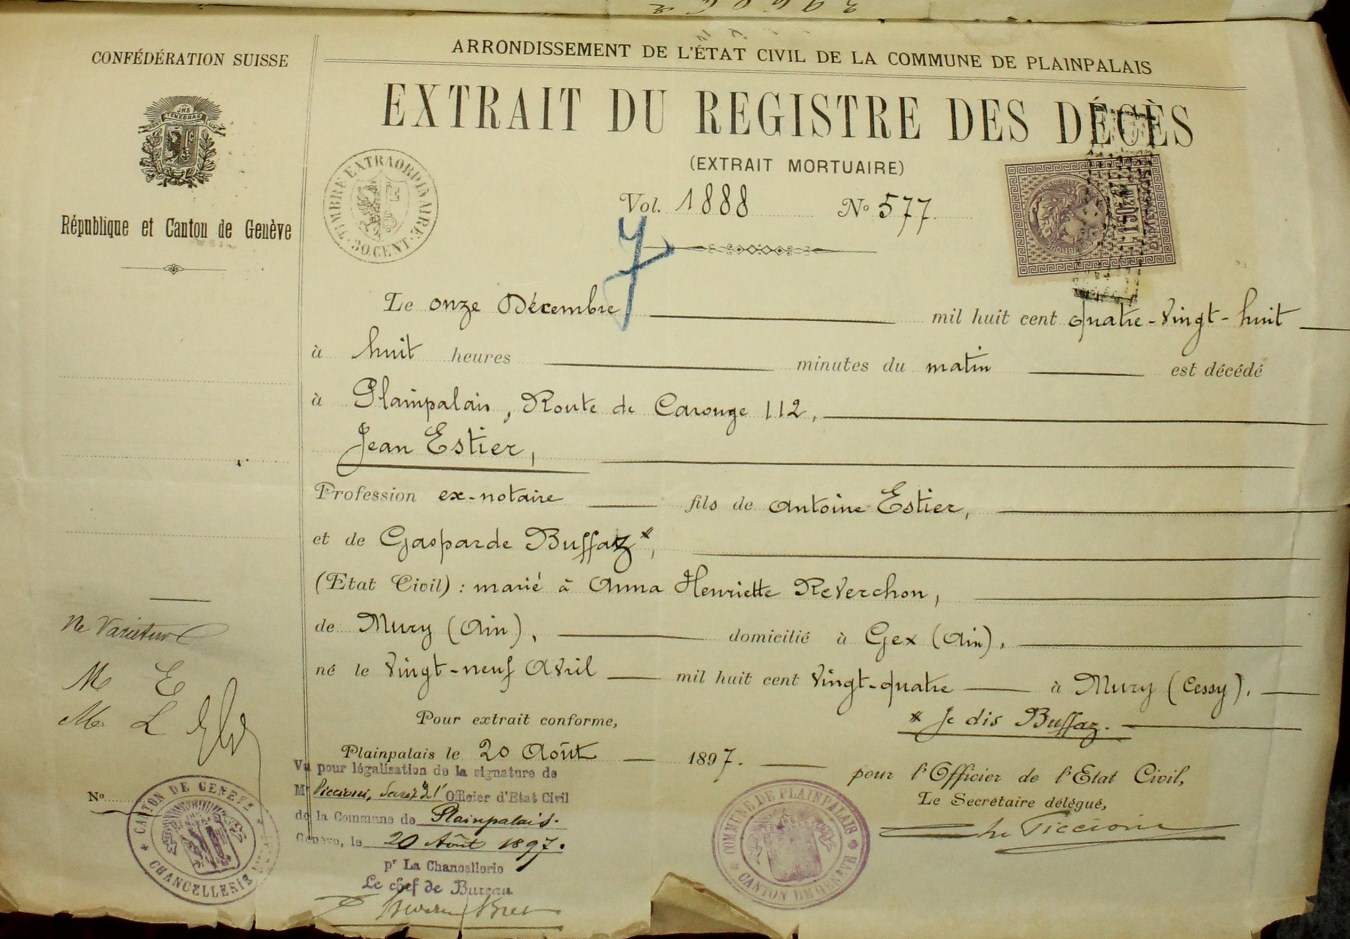 CONFÉDÉRATION SUISSE
République et Canton de Genève
ARRONDISSEMENT DE L'ÉTAT CIVIL DE LA COMMUNE DE PLAINPALAIS
EXTRAIT DU REGISTRE DES DÉCÈS
(EXTRAIT MORTUAIRE)
TIMBRE EXTRAORDINAIRE
30 CENT.
Vol. 1888 No 577
7
Le onze Décembre mil huit cent quatre-vingt-huit
à huit heures minutes du matin est décédé
à Plainpalais, Route de Carouge 112,
Jean Estier,
Profession ex-notaire fils de Antoine Estier,
et de Gasparde Buffaz*,
(Etat Civil) : marié à Anna Henriette Reverchon,
de Mury (Ain), domicilié à Gex (Ain),
né le vingt-neuf Avril mil huit cent vingt-quatre à Mury (Cessy).
* Je dis Buffaz.
Pour extrait conforme,
Plainpalais le 20 Août 1897.
pour l'Officier de l'Etat Civil,
Le Secrétaire délégué,
Piccioni
Ne Varietur
M E
M. L
No
CANTON DE GENÈVE
CHANCELLERIE
Vu pour légalisation de la signature de
Mr Piccioni, Officier d'Etat Civil
de la Commune de Plainpalais.
Genève, le 20 Août 1897.
pr La Chancellerie
Le chef de Bureau
COMMUNE DE PLAINPALAIS
CANTON DE GENÈVE